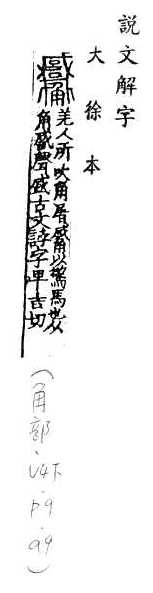 說文解字
大徐本
羌人所吹角屠以驚馬也从
角聲古文誖字卑吉切
(角部.V4下.p9.99)